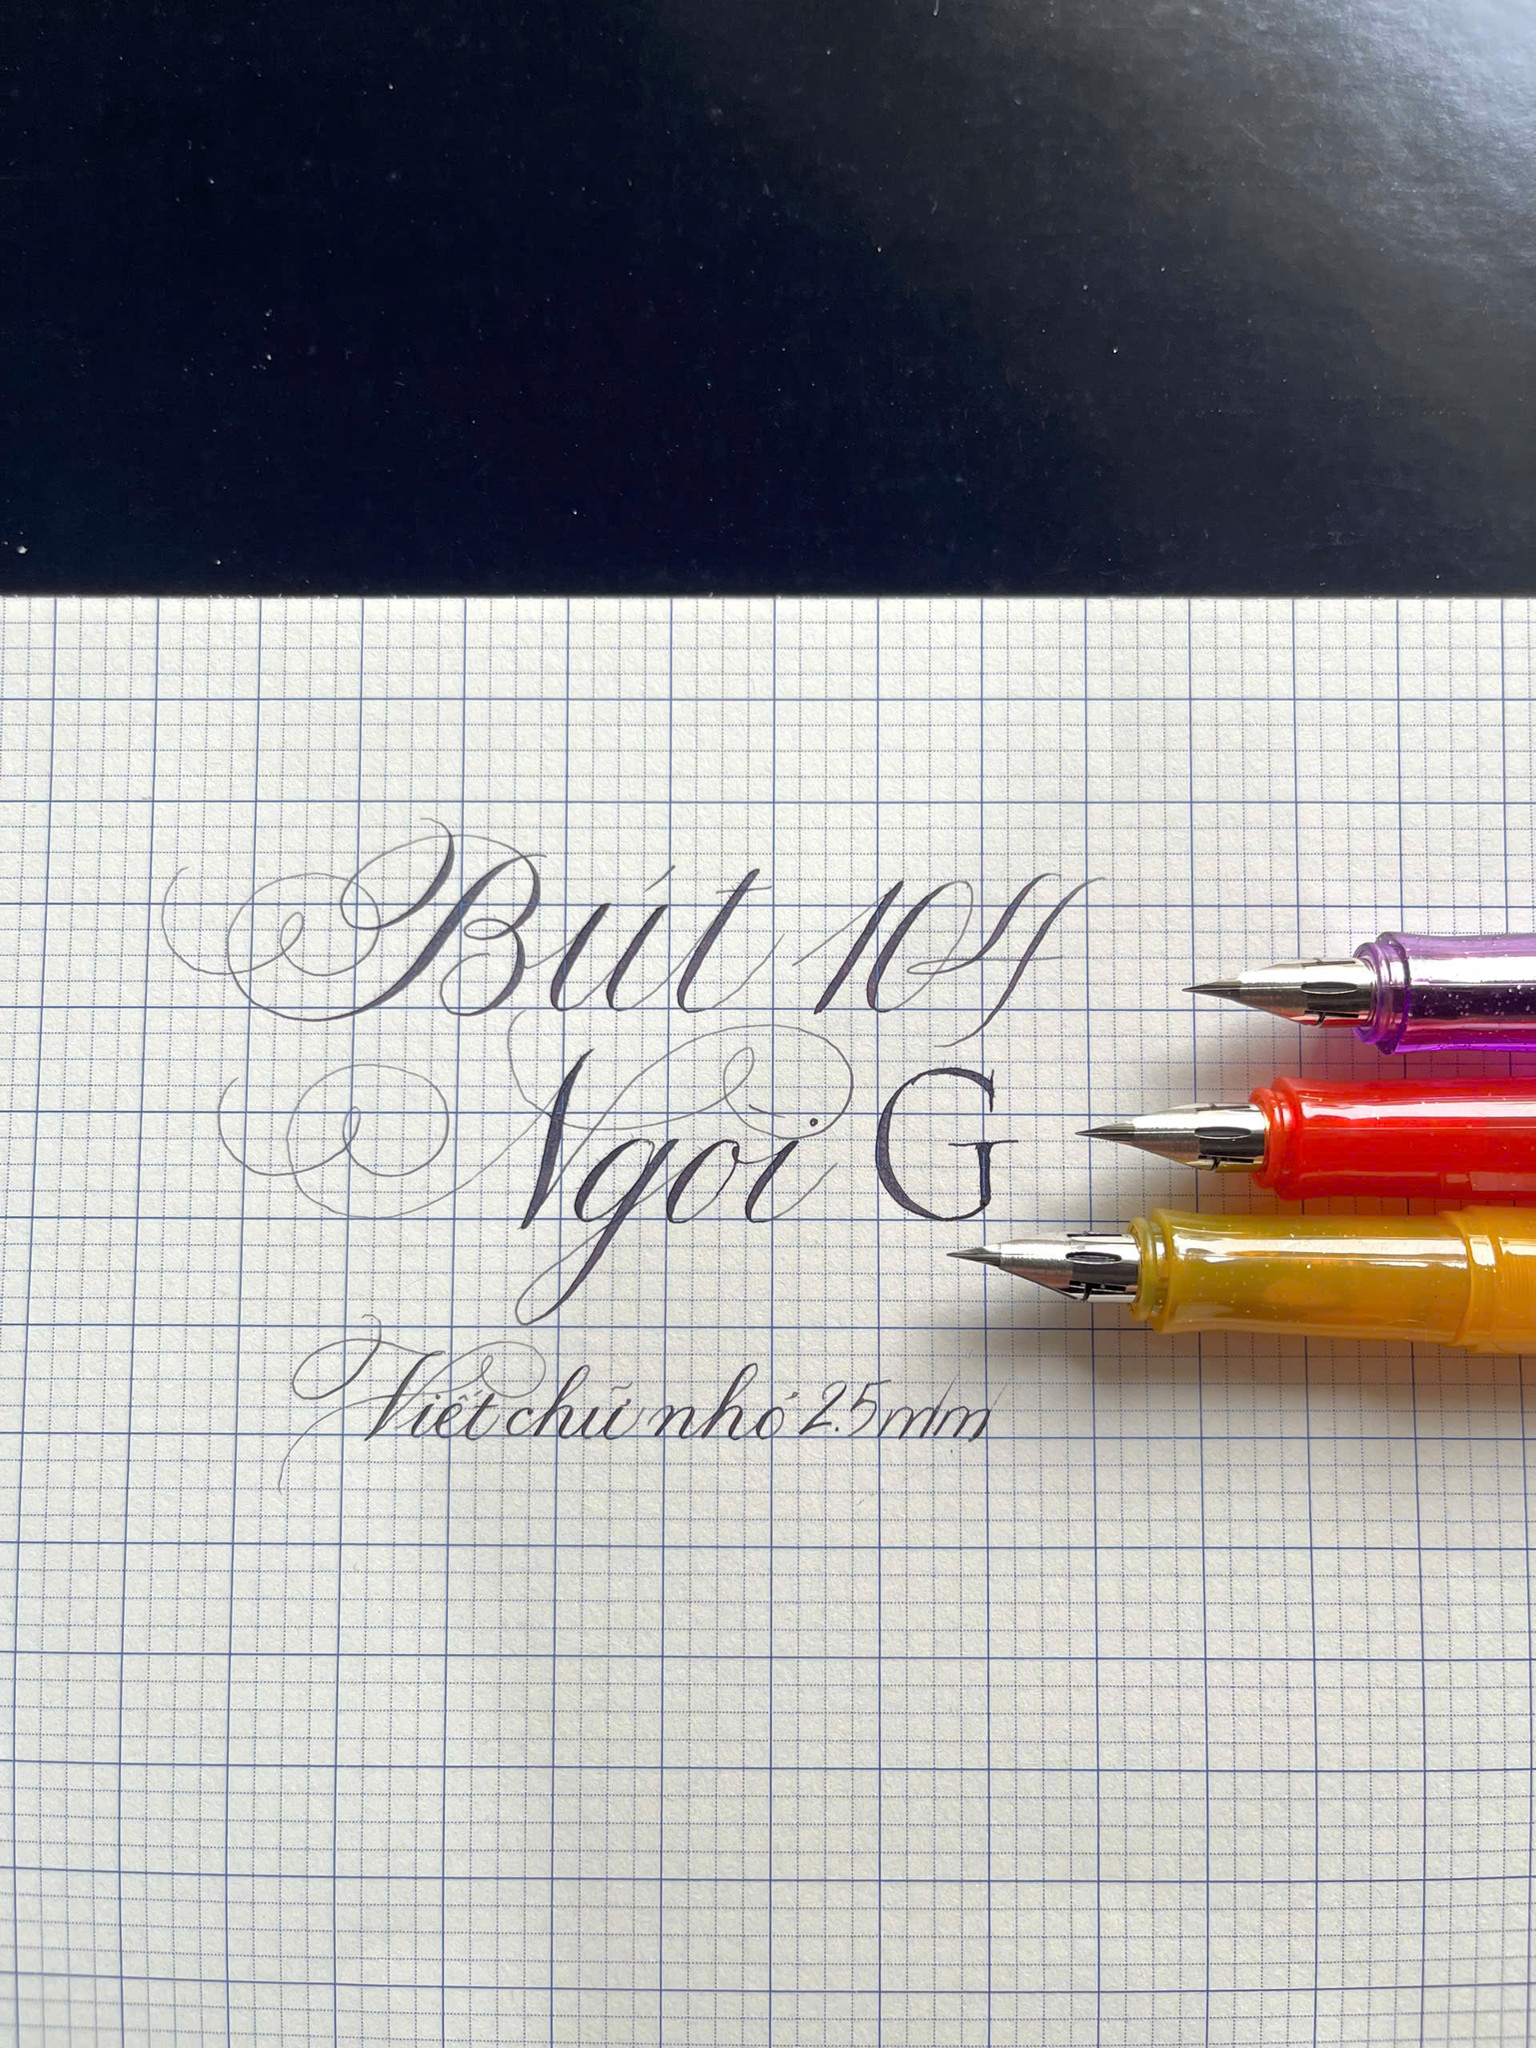 Bút 104
Ngòi G
Viết chữ nhỏ 2.5mm